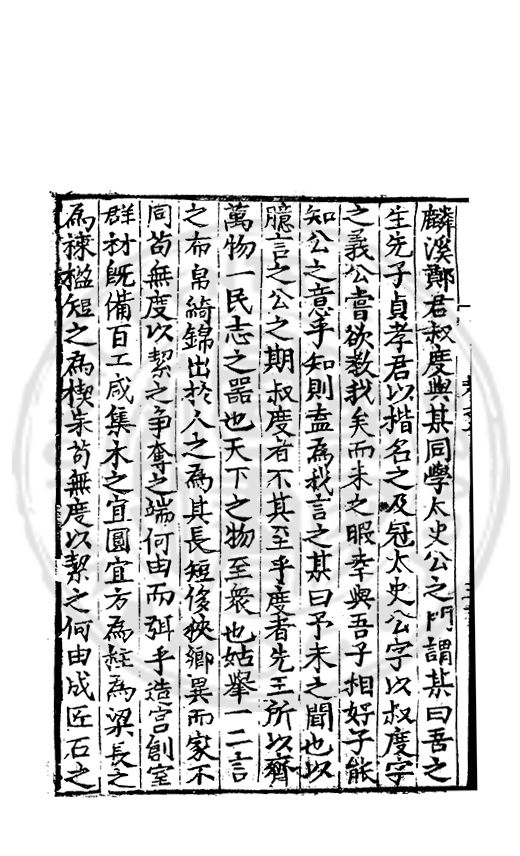 麟溪鄭君叔度與某同學太史公之門謂某曰吾之
生先子貞孝君以楷名之及冠太史公字以叔度字
之義公嘗欲教我矣而未之暇幸與吾子相好子能
知公之意乎知則盍為我言之某曰予未之聞也以
臆言之公之期叔度者不其至乎度者先王所以齊
萬物一民志之器也天下之物至衆也姑舉一二言
之布帛綺錦出於人之為其長短侈狹鄉異而家不
同苟無度以絜之争奪之端何由而弭乎造宫創室
群材旣備百工咸集木之宜圓宜方為柱為梁長之
為楝楹短之為楔朱苟無度以絜之何由成匠石之